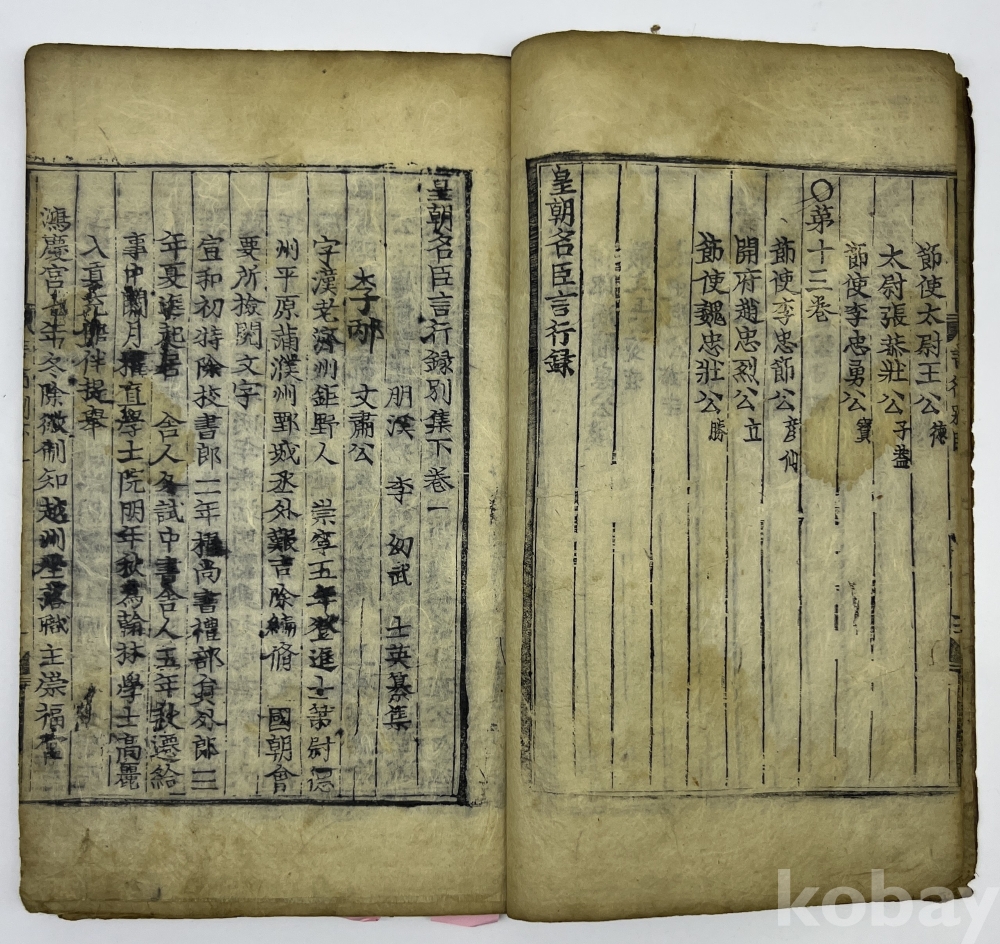 節使太尉王公德
太尉張恭壯公子蓋
節使李忠勇公寶
〇苐十三卷
節使李忠節公彦仙
開府趙忠烈公立
節使魏忠壯公勝
皇朝名臣言行録
皇朝名臣言行録別集下卷一
朋溪 李 幼武 士英纂集
李邴 文肅公
字漢老濟州鉅野人 崇寧五年登進士第尉德
州平原蒲濮州野城丞外艱吉除編脩 國朝會
要所檢閱文字
宣和初特除校書郎二年擢尚書禮部貟外郎三
年夏遷起居 舍人冬試中書舍人五年秋遷給
事中閏月擢直學士院明年秋爲翰林學士高麗
入貢充舘伴提舉
鴻慶宮 年冬除徽制知越州 落職主崇福宮
kobay